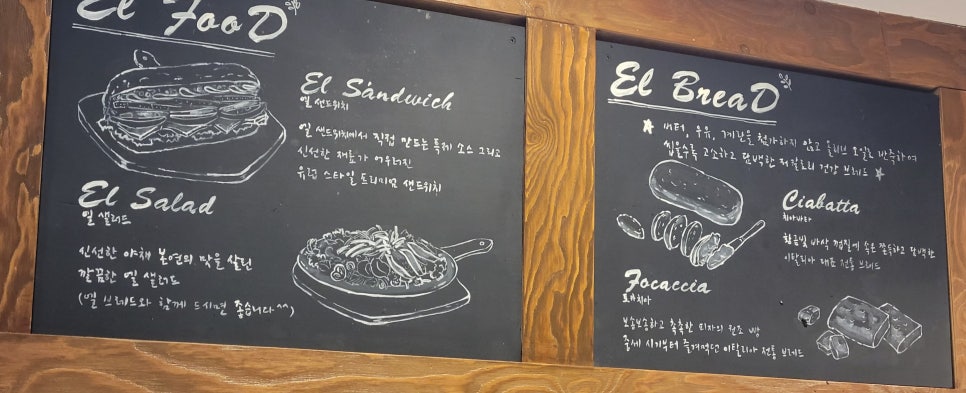 El FooD
El Sandwich
엘 샌드위치
엘 샌드위치에서 직접 만드는 특제 소스 그리고
신선한 재료가 어우러진
유럽 스타일 프리미엄 샌드위치
El Salad
엘 샐러드
신선한 야채 본연의 맛을 살린
깔끔한 엘 샐러드
(엘 브레드와 함께 드시면 좋습니다^^)
El BreaD
☆ 버터, 우유, 계란을 첨가하지 않고 올리브 오일로 반죽하여
씹을수록 고소하고 담백한 저칼로리 건강 브레드 ☆
Ciabatta
치아바타
황금빛 바삭 껍질에 속은 쫄두하고 담백한
이탈리아 대표 전통 브레드
Focaccia
포카치아
보송보송하고 촉촉한 피자의 원조 빵
중세 시기부터 즐겨먹던 이탈리아 전통 브레드